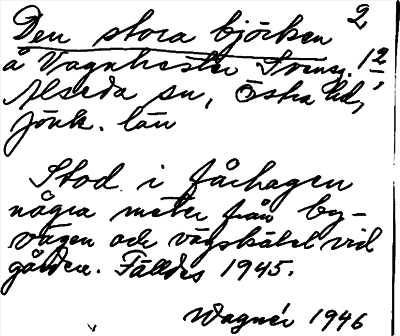 Den stora björken 2
å Vagnhester Svensg. 1 2/
Alseda sn, Östra hd,
Jönk. län
Stod i fårhagen
några meter från by-
vägen och vägskälet vid
gården. Fälldes 1945.
Wagnér 1946